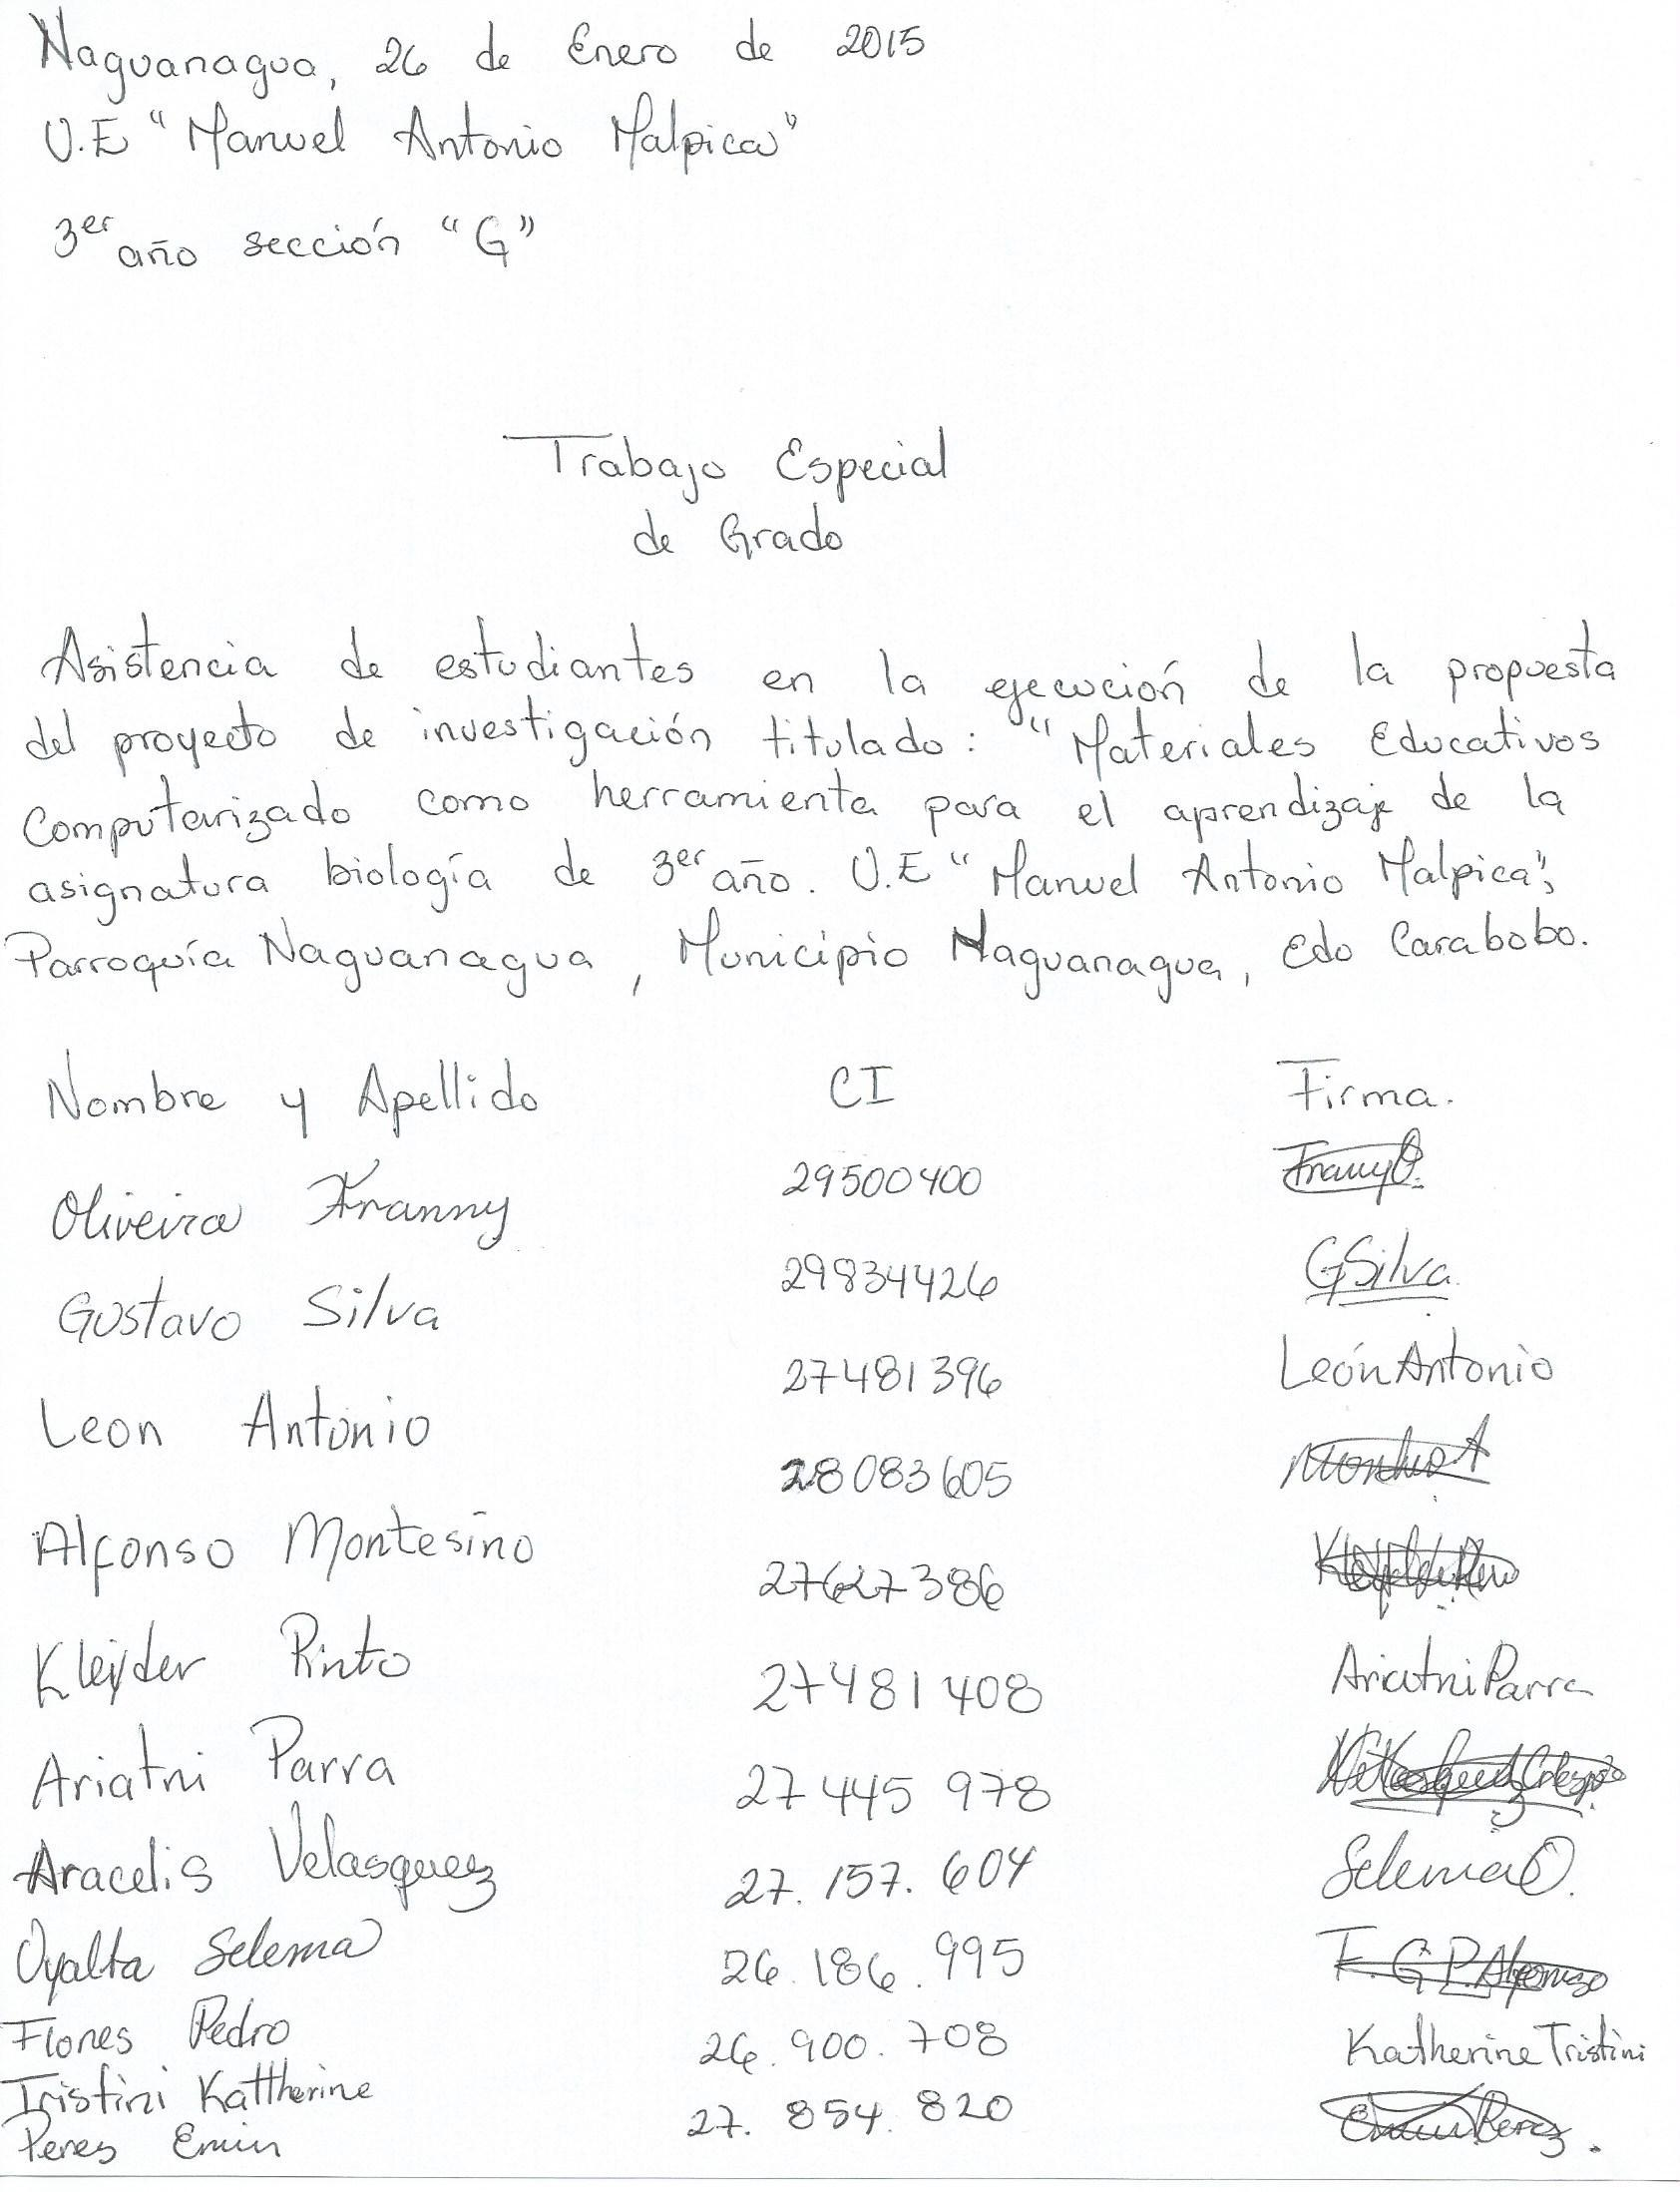 Naguanagua, 26 de Enero de 2015
U.E "Manuel Antonio Malpica"
3er año sección "G"
Trabajo Especial
de Grado
Asistencia de estudiantes en la ejecución de la propuesta
del proyecto de investigación titulado: "Materiales Educativos
Computarizado como herramienta para el aprendizaje de la
asignatura biología de 3er año. U.E "Manuel Antonio Malpica",
Parroquía Naguanagua, Municipio Naguanagua, Edo Carabobo.
Nombre y Apellido CI Firma.
Oliveira Franny 29500400 FranyO.
Gustavo Silva 29834426 GSilva.
Leon Antonio 27481396 León Antonio
Alfonso Montesino 28083605
Kleyder Pinto 27627386
Ariatni Parra 27481408 Ariatni Parra
Aracelis Velasquez 27445978
Oyalta Selema 27.157.604 Selema O.
Flores Pedro 26.186.995 F. G P. Alfonso
Tristini Kattherine 26.900.708 Katherine Tristini
Peres Emin 27.854.820 Perez.